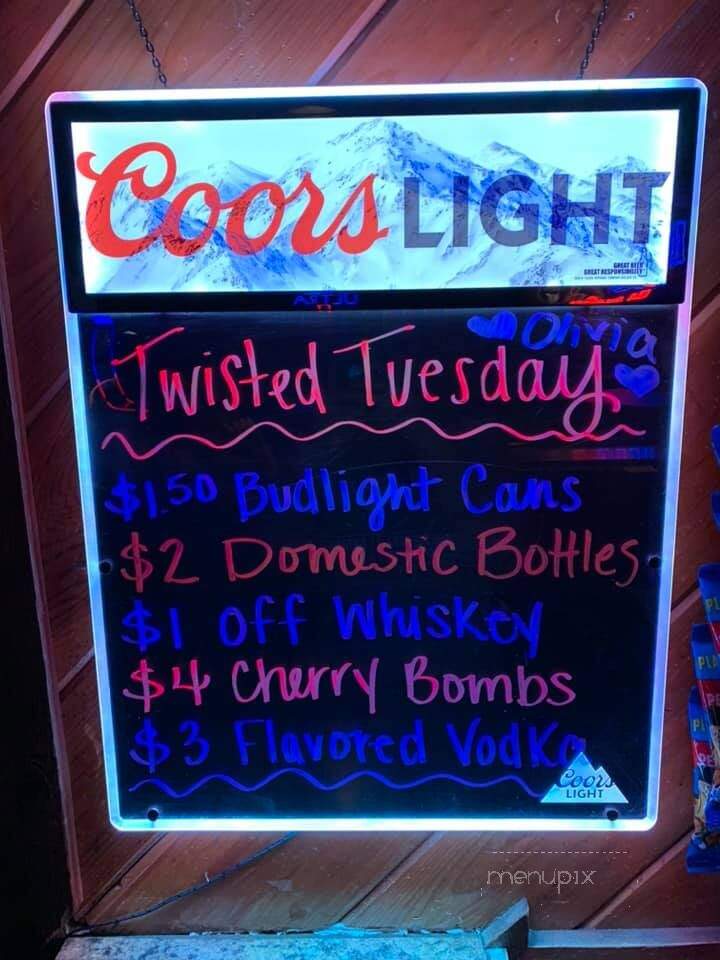 Coors LIGHT
GREAT BEER
GREAT RESPONSIBILITY
Olivia
Twisted Tuesday
$1.50 Budlight Cans
$2 Domestic Bottles
$1 off Whiskey
$4 Cherry Bombs
$3 Flavored Vodka
Coors
LIGHT
menupix